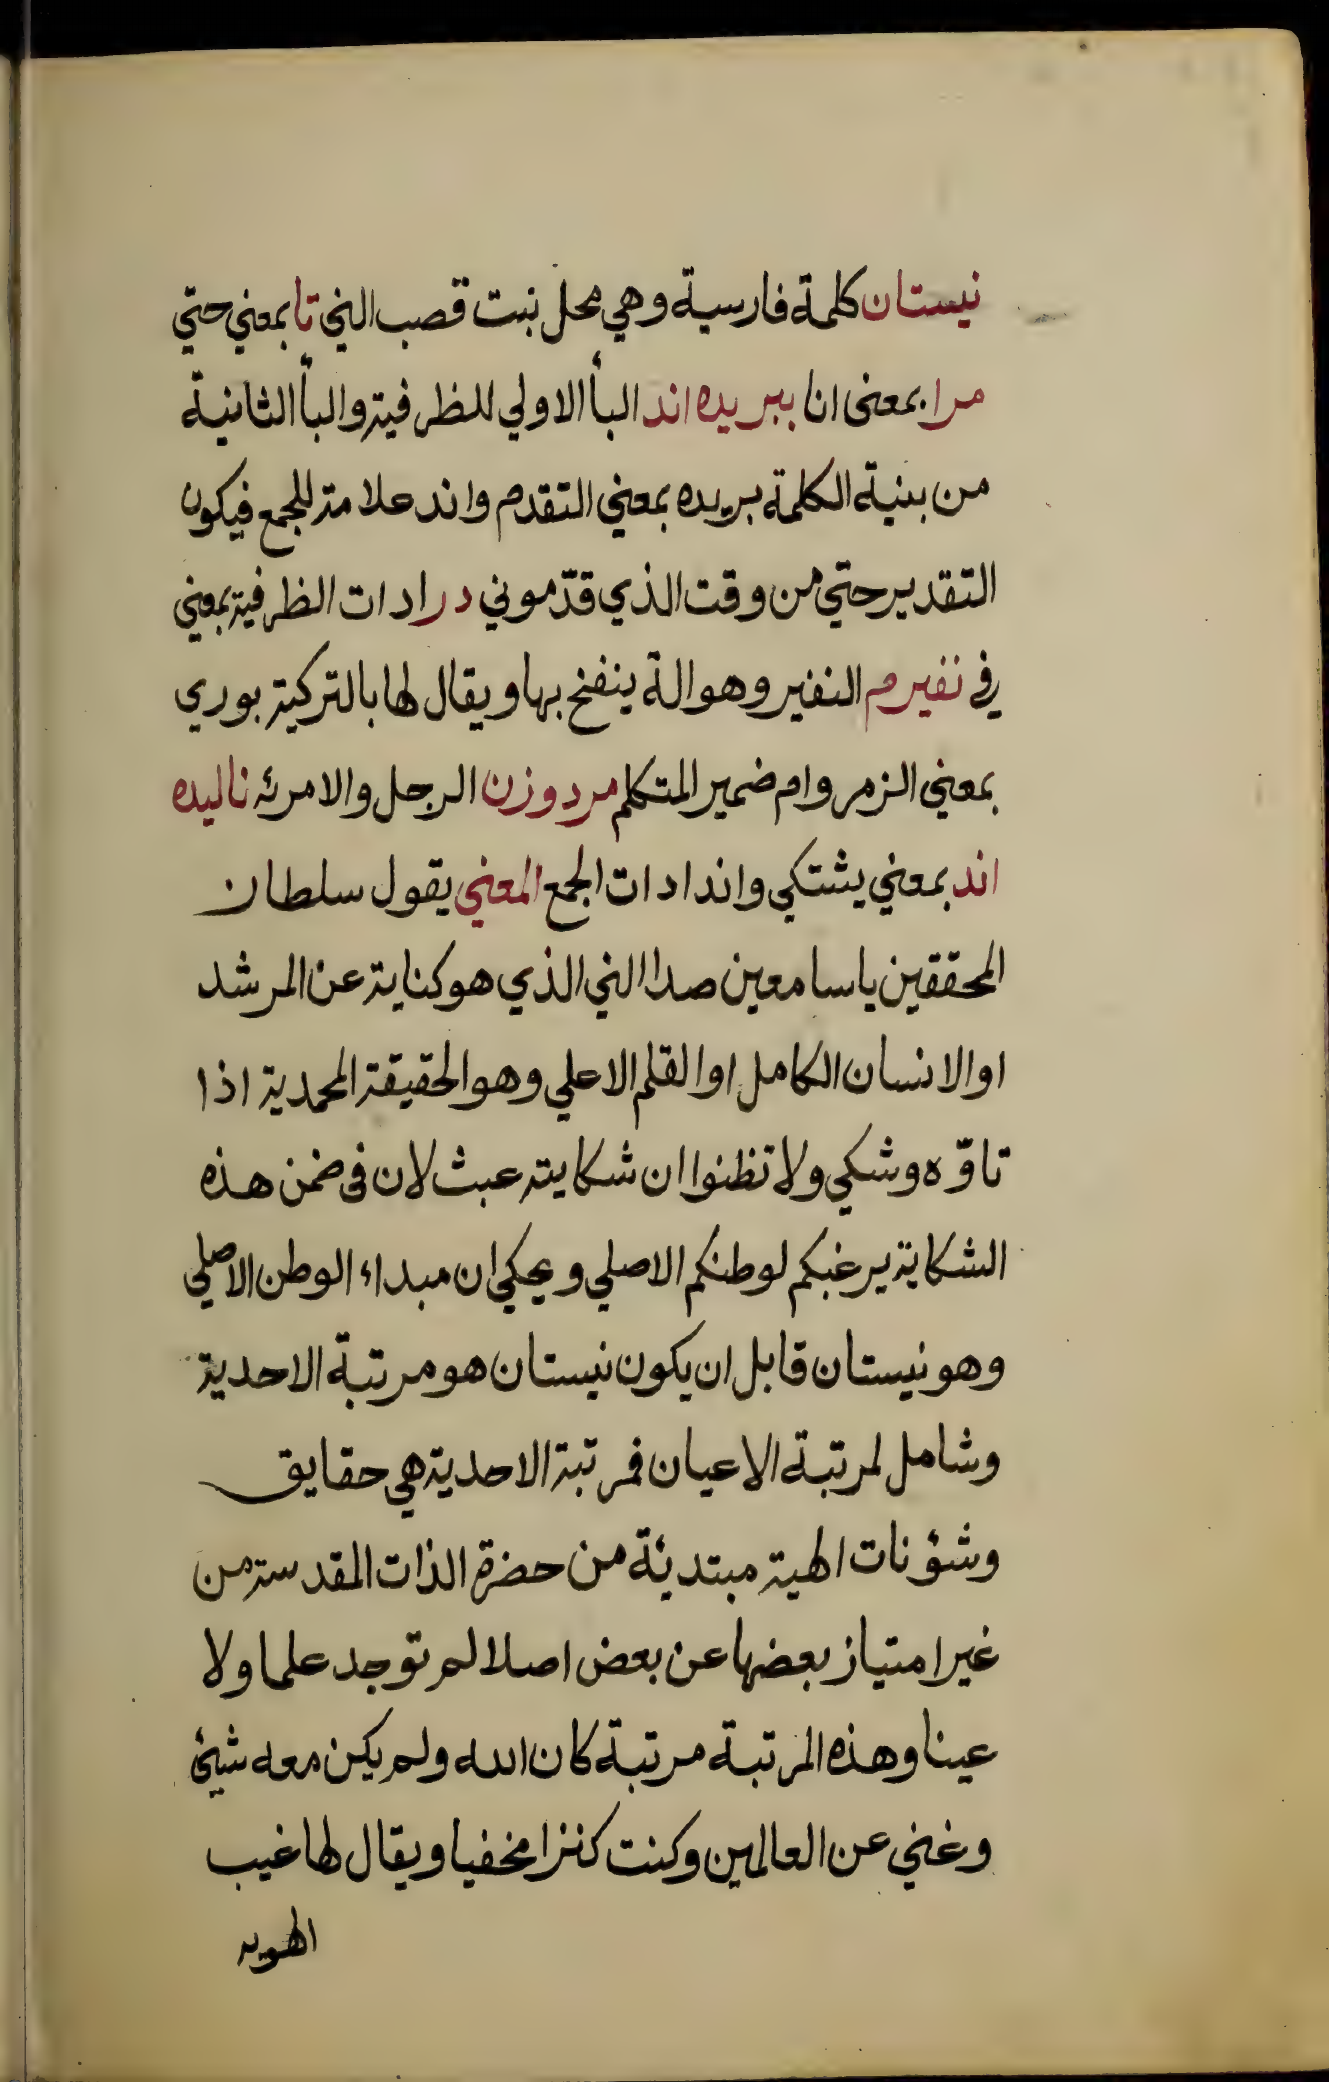 نيستان كلمة فارسية وهي محل نبت قصب الني تا بمعني حتي
مرا بمعنى انا ببريده اند البأ الاولي للظرفية والبأ الثانية
من بنية الكلمة بريده بمعني التقدم واند علامة للجمع فيكون
التقدير حتي من وقت الذي قدّموني در ادات الظرفية بمعني
في نفيرم النفير وهو الة ينفخ بها ويقال لها بالتركية بوري
بمعني الزمر وام ضمير المتكلم مردوزن الرجل والامرئه ناليده
اند بمعني يشتكي واند ادات الجمع المعني يقول سلطان
المحققين ياسامعين صدا الني الذي هو كناية عن المرشد
او الانسان الكامل او القلم الاعلي وهو الحقيقة المحمدية اذا
تاوّه وشكي ولا تظنوا ان شكايته عبث لان فى ضمن هذه
الشكاية يرغبكم لوطنكم الاصلي ويحكي ان مبداء الوطن الاصلي
وهو نيستان قابل ان يكون نيستان هو مرتبة الاحدية
وشامل لمرتبة الاعيان فمرتبة الاحدية هي حقايق
وشؤنات الهية مبتدئة من حضرة الذات المقدسة من
غير امتياز بعضها عن بعض اصلا لم توجد علما ولا
عينا وهذه المرتبة مرتبة كان الله ولم يكن معه شيئ
وغني عن العالمين وكنت كنزا مخفيا ويقال لها غيب
الهويه